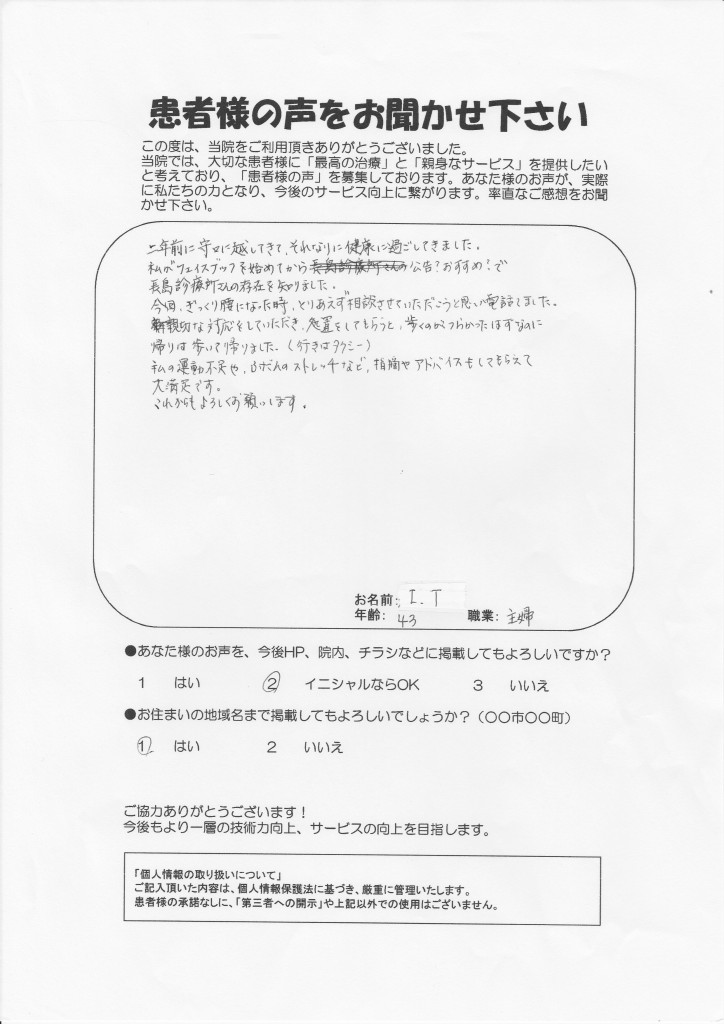 患者様の声をお聞かせ下さい
この度は、当院をご利用頂きありがとうございました。
当院では、大切な患者様に「最高の治療」と「親身なサービス」を提供したい
と考えており、「患者様の声」を募集しております。あなた様のお声が、実際
に私たちの力となり、今後のサービス向上に繋がります。率直なご感想をお聞
かせ下さい。
二年前に守口に越してきて、それなりに健康に過ごしてきました。
私がフェイスブックを始めてから長島診療所さんの公告?おすすめ?で
長島診療所さんの存在を知りました。
今回、ぎっくり腰になった時、とりあえず相談させていただこうと思い電話しました。
親切な対応をしていただき、処置をしてもらうと、歩くのがつらかったはずなのに
帰りは歩いて帰りました。(行きはタクシー)
私の運動不足や、ふだんのストレッチなど、指摘やアドバイスもしてもらえて
大満足です。
これからもよろしくお願いします。
お名前: I.T
年齢: 43 職業: 主婦
●あなた様のお声を、今後HP、院内、チラシなどに掲載してもよろしいですか?
1 はい ② イニシャルならOK 3 いいえ
●お住まいの地域名まで掲載してもよろしいでしょうか?(〇〇市〇〇町)
① はい 2 いいえ
ご協力ありがとうございます!
今後もより一層の技術力向上、サービスの向上を目指します。
「個人情報の取り扱いについて」
ご記入頂いた内容は、個人情報保護法に基づき、厳重に管理いたします。
患者様の承諾なしに、「第三者への開示」や上記以外での使用はございません。